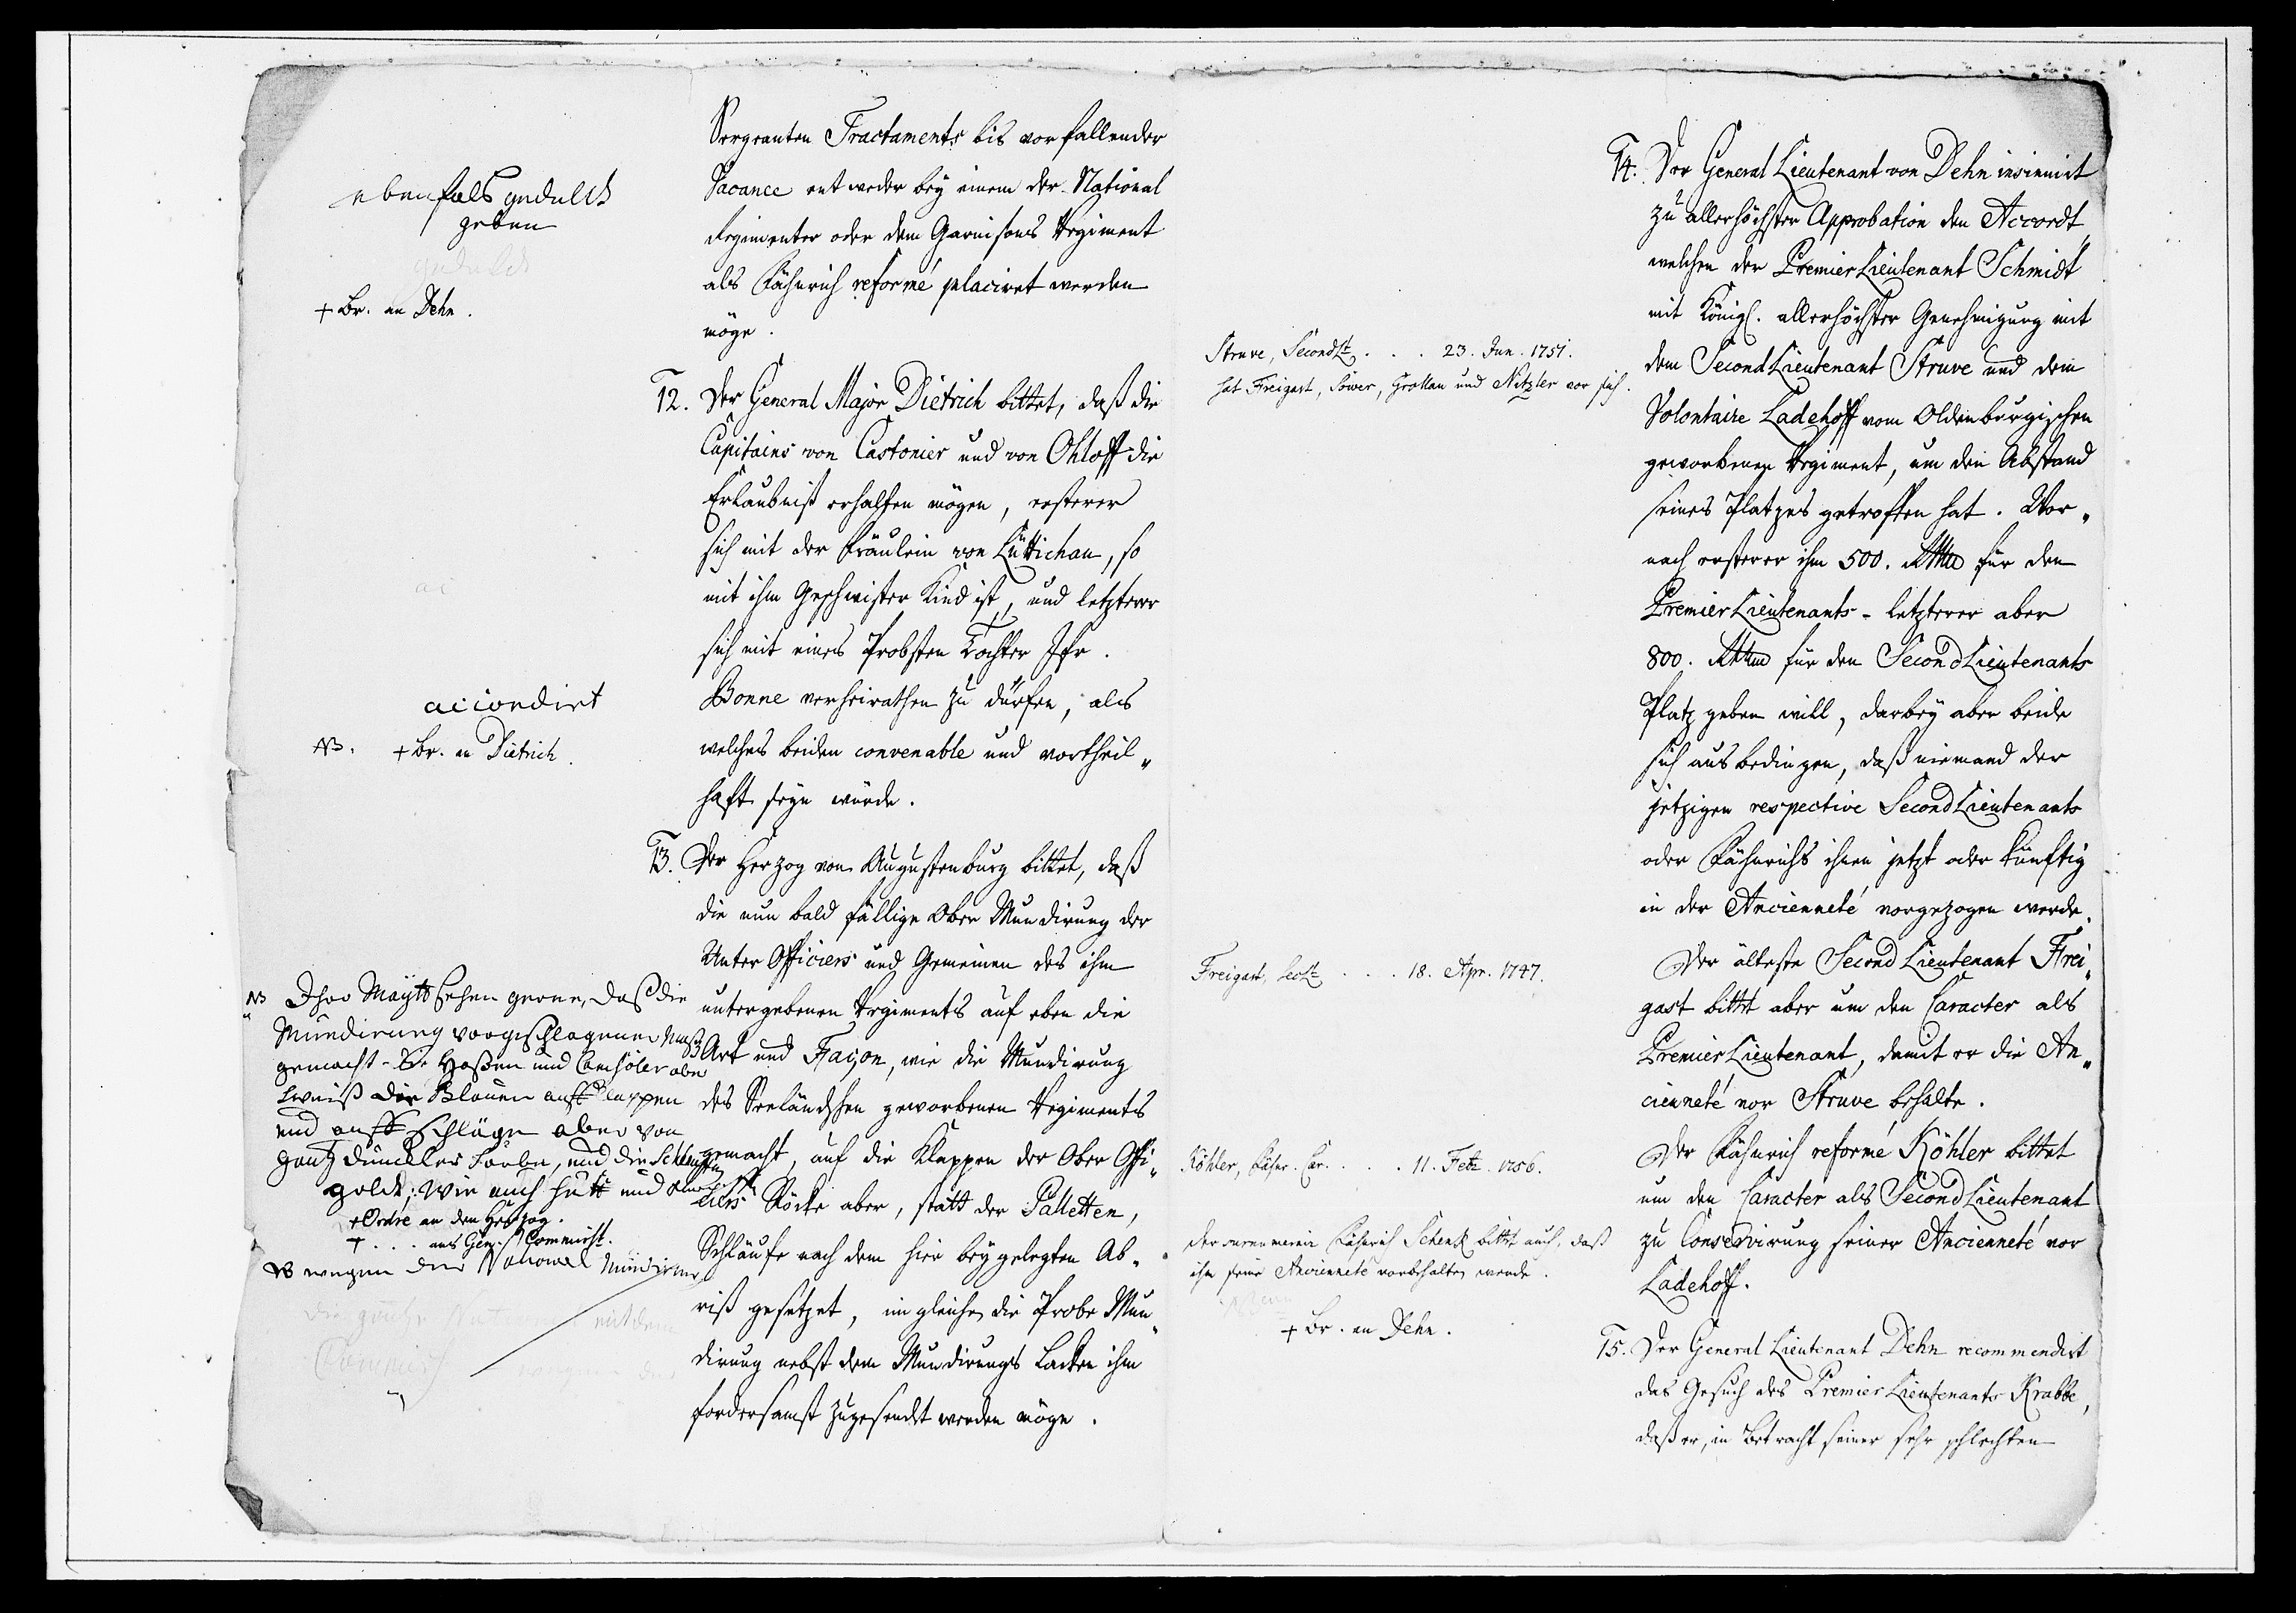 Sergeanten Tractaments bis vorfallender
Vacance entweder bey einem der National
Regimenter oder dem Garnisons Regiment
als Fähnrich reformé placiret werden
möge.
ebenfals gedultt
geben
+ Br. an Dehn.
12. Der General Major Dietrich bittet, daß die
Capitains von Castonier und von Ohloff die
Erlaubniß erhalten mögen, ersterer
sich mit der Fräulein von Lüttichau, so
mit ihm Geschwister Kind ist, und letzterer
sich mit eines Probsten Tochter Jfr.
Bonne verheirathen zu dürfen, als
welches beiden convenable und vortheil„
haft seyn würde.
accordirt
NB. + Br. an Dietrich.
13. Der Herzog von Augustenburg bittet, daß
die nun bald fällige Ober Mundirung der
Unter Officiers und Gemeinen des ihm
untergebenen Regiments auf eben die
Art und Façon, wie die Mundirung
des Seeländschen geworbenen Regiments
gemacht, auf die Klappen der Ober Offi„
ciers Röcke aber, statt der Palletten,
Schläufe nach dem hier beygelegten Ab„
riß gesetzet, im gleichen die Probe Mun„
dirung nebst dem Mundirungs Lacken ihm
fordersamst zugesendet werden möge.
NB Ihro Maytt sehen gerne, daß die
Mundirung vorgeschlagener Maß
gemacht die Hoßen und Camisöler aber
weiß die Blauen auff Klappen
und auff schläge aber von
gantz dunckler Farbe, und die Schleuffen
goldt; wie auch hutt und
+ Ordre an den Herzog.
+ . . . ans Gen. Commisst.
NB wegen der National Mundirung
14. Der General Lieutenant von Dehn insinuirt
zu allerhöchster Approbation den Accordt,
welchen der Premier Lieutenant Schmidt
mit Königl. allerhöchster Genehmigung mit
dem Second Lieutenant Struve und dem
Volontaire Ladehoff vom Oldenburgischen
geworbenen Regiment, um den Abstand
seines Platzes getroffen hat. Wor„
nach ersterer ihm 500. Rthlr für den
Premier Lieutenants - letzterer aber
800. Rthlr für den Second Lieutenants
Platz geben will, darbey aber beide
sich ausbedingen, daß niemand der
jetzigen respective Second Lieutenants
oder Fähnrichs ihnen jetzt oder künftig
in der Ancienneté vorgezogen werde.
Struve, Second Lt. . . . 23. Jun. 1751.
hat Freigast, Söwer, Grollau und Nitzler vor sich.
Der älteste Second Lieutenant Frei„
gast bittet aber um den Caracter als
Premier Lieutenant, damit er die An„
cienneté vor Struve behalte.
Freigast, Sec Lt . . . 18. Apr. 1747.
Der Fähnrich reformé Köhler bittet
um den Caracter als Second Lieutenant
zu Conservirung seiner Ancienneté vor
Ladehoff.
Köhler, Fähnr. Car. . . . 11. Febr. 1756.
Der Fähnrich Schenk bittet auch, daß
ihm seine Ancienneté vorbehalten werde.
+ Br. an Dehn.
15. Der General Lieutenant Dehn recommendirt
das Gesuch des Premier Lieutenants Krabbe,
daß er, in Betracht seiner sehr schlechten